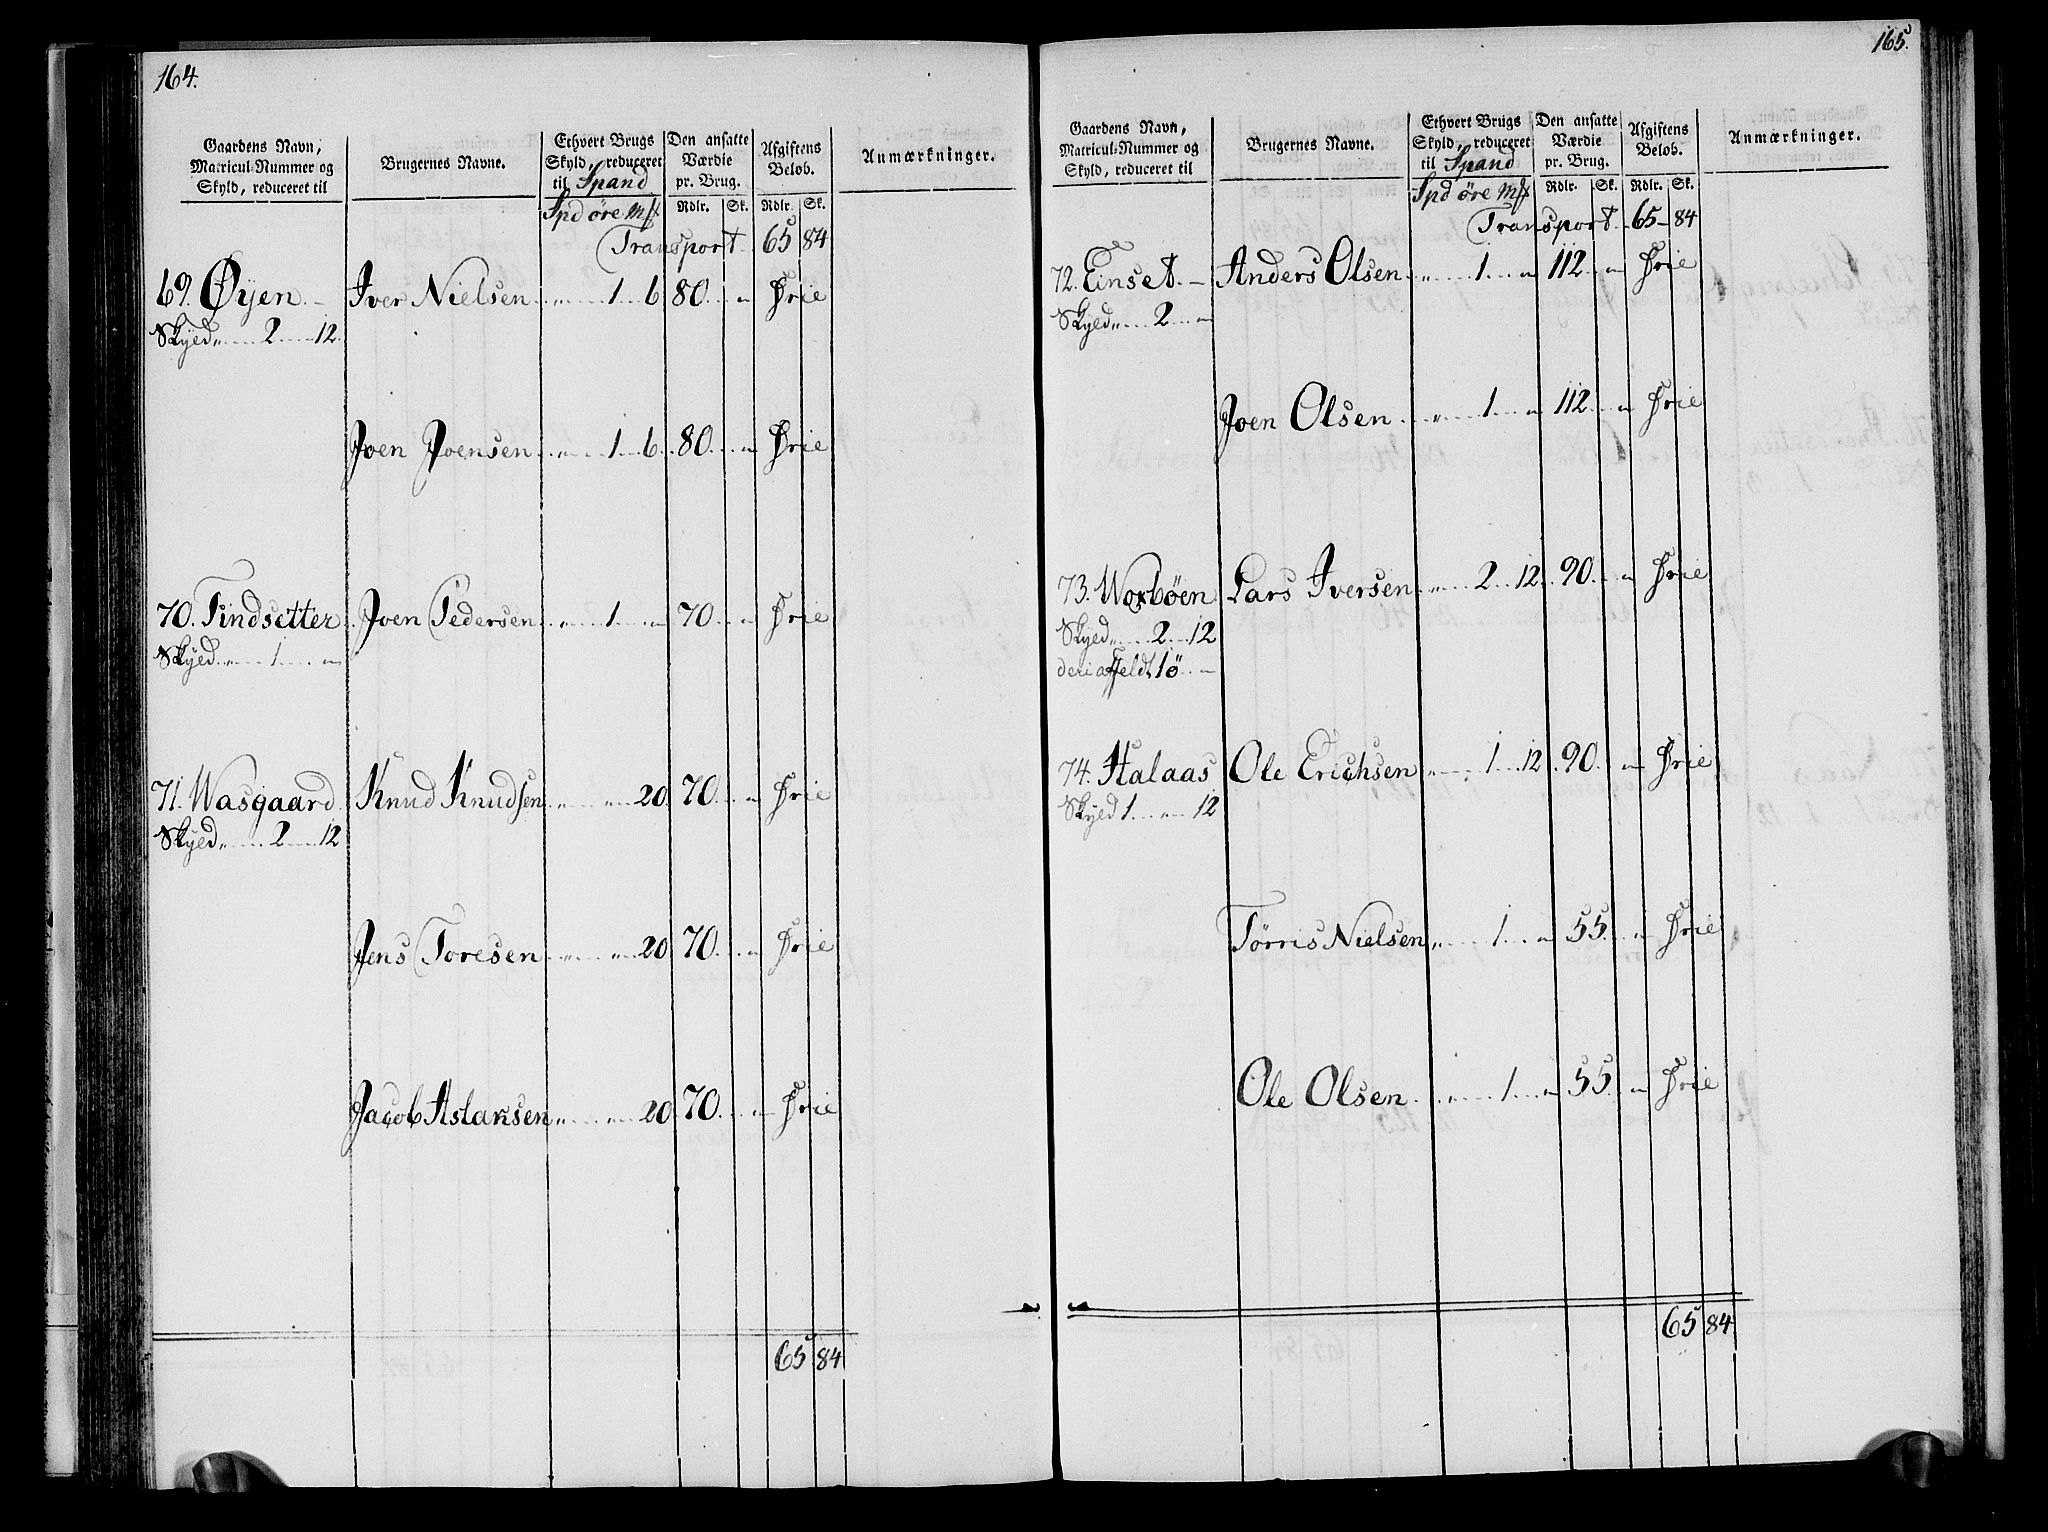 164.
Gaardens Navn, Matricul-Nummer og Skyld, reduceret til
Brugernes Navne.
Ethvert Brugs Skyld, reduceret til Spand
Den ansatte Værdie pr. Brug.
Afgiftens Beløb.
Anmærkninger.
Spd øre Mk Rdlr. Sk. Rdlr. Sk.
Transport. 65 84
69. Øyen. Iver Nielsen „ 1 6 80 „ Frie
Skyed „ 2 12
Joen Joensen „ 1 6 80 „ Frie
70. Findsetter Joen Pedersen „ 1 „ 70 „ Frie
Skyed „ 1 „
71. Wasgaard Knud Knudsen „ „ 20 70 „ Frie
Skyed „ 2 12
Jens Toresen „ „ 20 70 „ Frie
Jacob Aslaksen „ „ 20 70 „ Frie
65 84
165.
Gaardens Navn, Matricul-Nummer og Skyld, reduceret til
Brugernes Navne.
Ethvert Brugs Skyld, reduceret til Spand
Den ansatte Værdie pr. Brug.
Afgiftens Beløb.
Anmærkninger.
Spd øre Mk Rdlr. Sk. Rdlr. Sk.
Transport. 65 84
72. Einset. Anders Olsen „ 1 „ 112 „ Frie
Skyed „ 2 „
Joen Olsen „ 1 „ 112 „ Frie
73. Woxbøen Lars Iversen „ 2 12 90 „ Frie
Skyed „ 2 12
deri affeldt 1ø „
74. Halaas Ole Erichsen „ 1 12 90 „ Frie
Skyed 1 „ 12
Tørris Nielsen „ 1 „ 55 „ Frie
Ole Olsen „ 1 „ 55 „ Frie
65 84